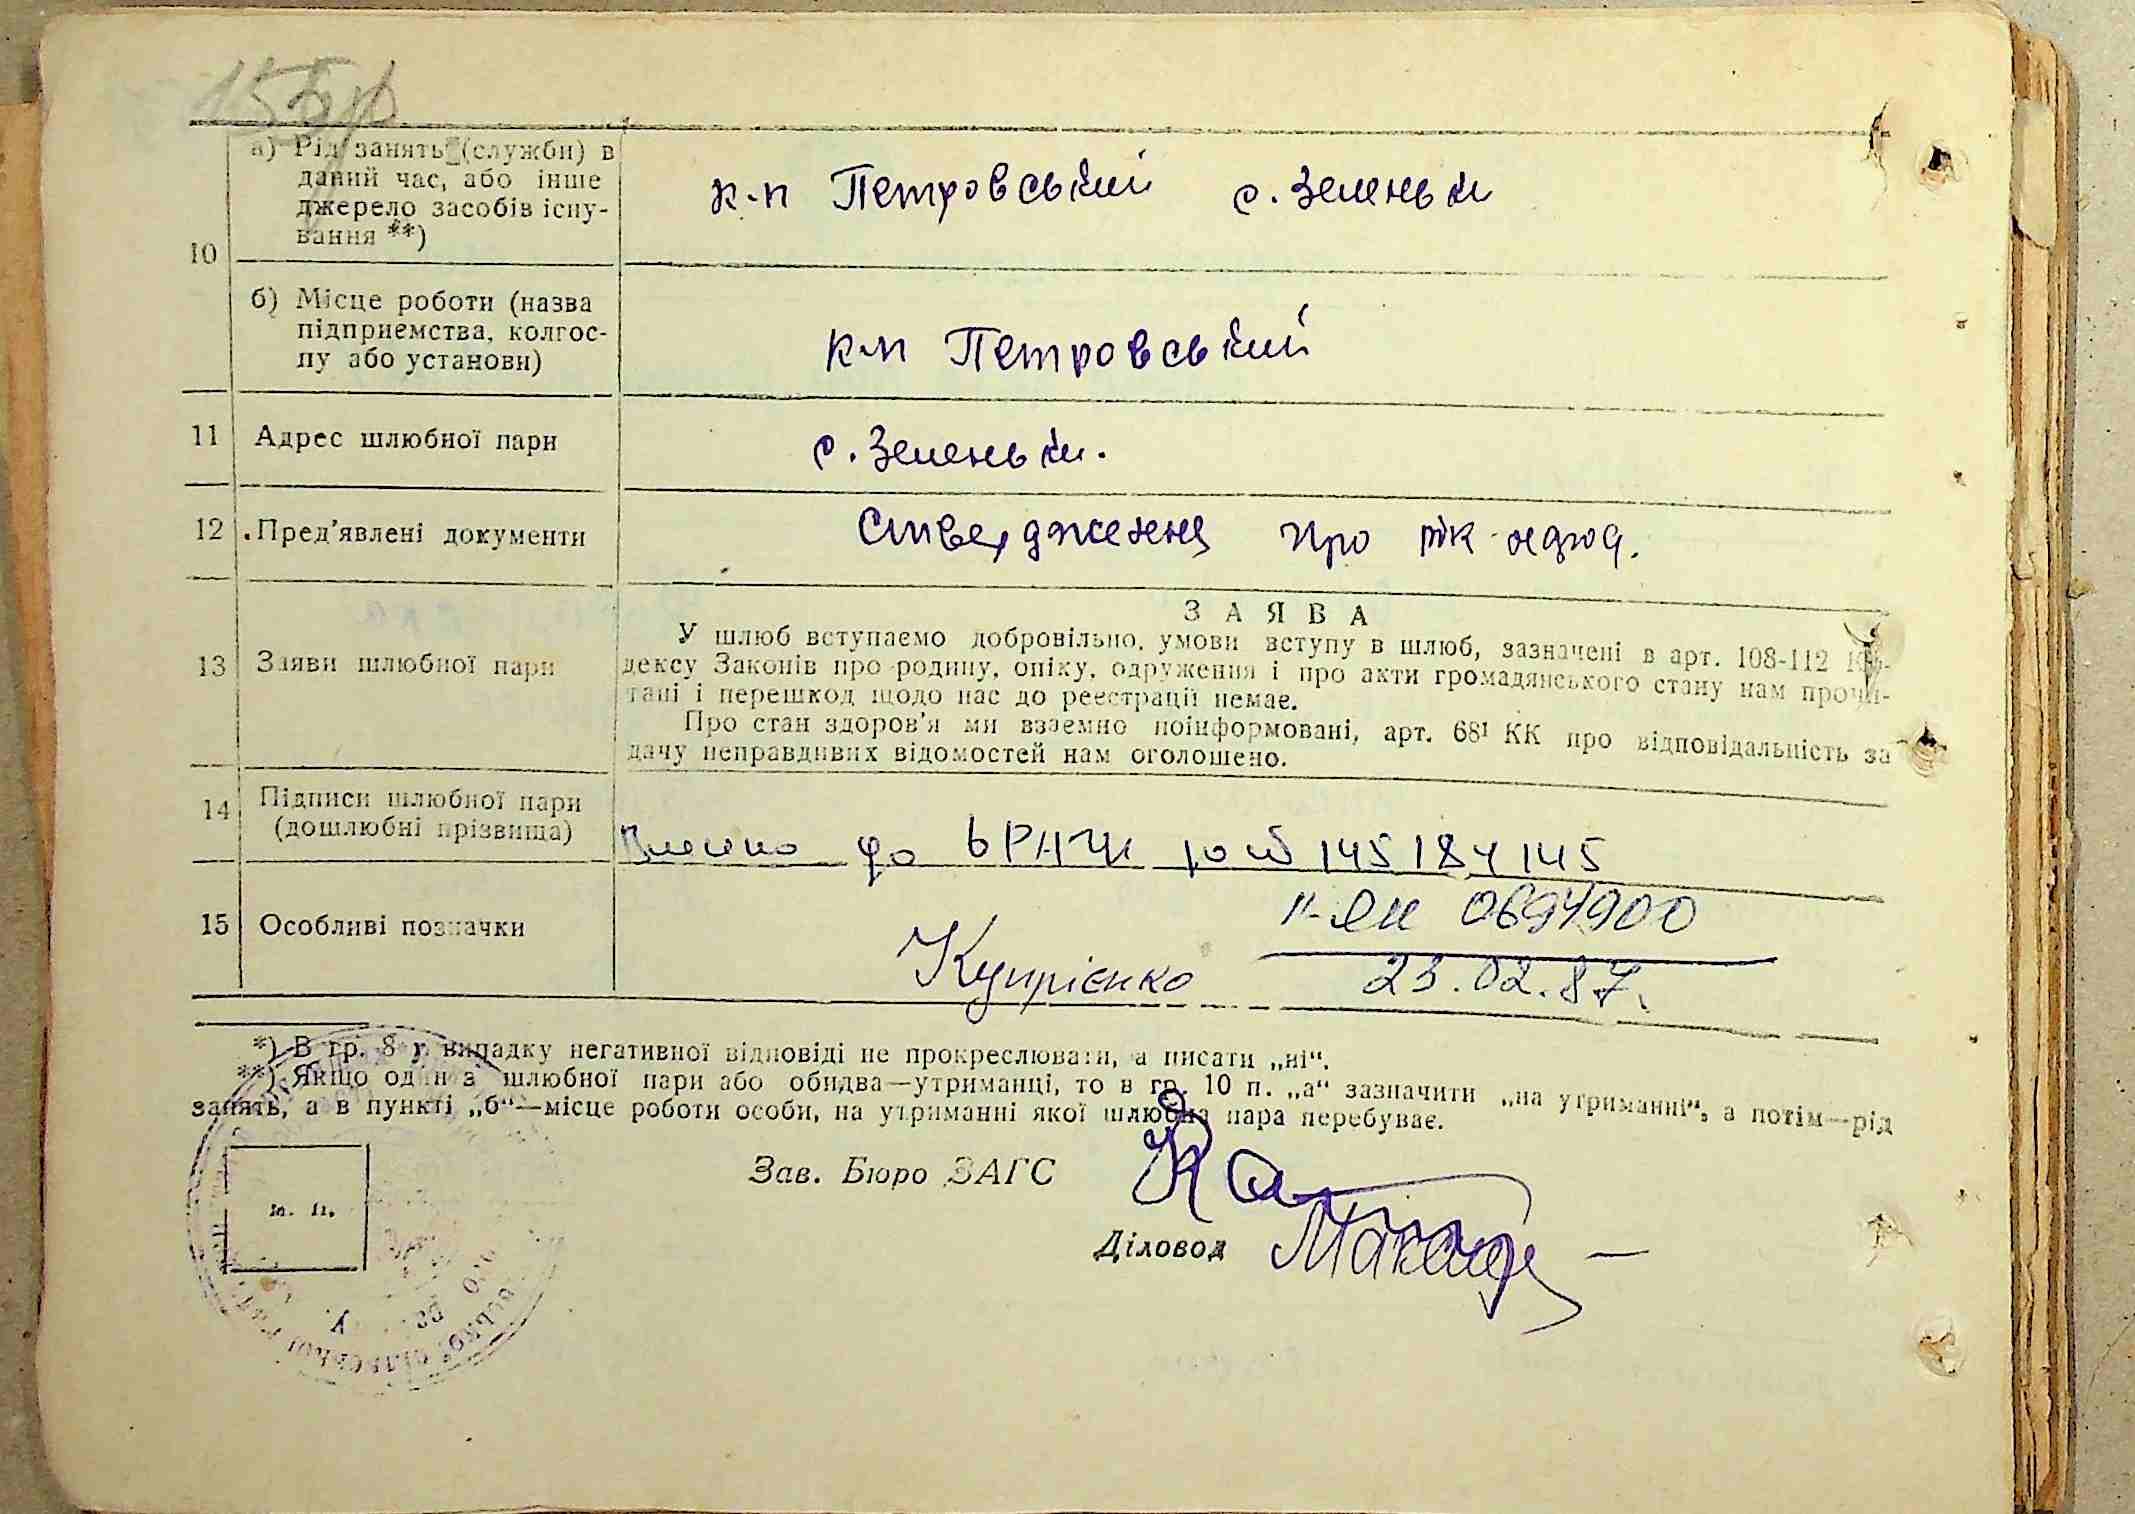 15
а) Рід занять (служби) в
даний час, або інше
джерело засобів існу-
вання **)
к-п Петровський с. Зеленьки
10
б) Місце роботи (назва
підприємства, колгос-
пу або установи)
к-п Петровський
11 Адрес шлюбної пари
с. Зеленьки.
12 Пред'явлені документи
Ствердження про рік
13 Заяви шлюбної пари
ЗАЯВА
У шлюб вступаємо добровільно, умови вступу в шлюб, зазначені в арт. 108-112 Ко-
дексу Законів про родину, опіку, одруження і про акти громадянського стану нам прочи-
тані і перешкод щодо нас до реєстрації немає.
Про стан здоров'я ми взаємно поінформовані, арт. 68¹ КК про відповідальність за
дачу неправдивих відомостей нам оголошено.
14 Підписи шлюбної пари
(дошлюбні прізвища)
до 145 184 145
15 Особливі позначки
0694900
Купрієнко 23.02.87.
*) В гр. 8 у випадку негативної відповіді не прокреслювати, а писати „ні“.
**) Якщо один з шлюбної пари або обидва—утриманці, то в гр. 10 п. „а“ зазначити „на утриманні“, а потім—рід
занять, а в пункті „б“—місце роботи особи, на утриманні якої шлюбна пара перебуває.
Зав. Бюро ЗАГС
м. п.
Діловод